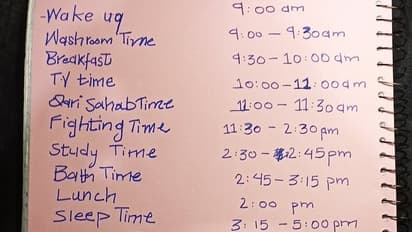 -Wake up 9:00 am
Washroom Time 9:00 - 9:30am
Breakfast 9:30 - 10:00 am
TV time 10:00 - 11:00am
Qari Sahab Time 11:00 - 11:30am
Fighting Time 11:30 - 2:30 pm
Study Time 2:30 - 2:45pm
Bath Time 2:45 - 3:15 pm
Lunch 2:00 pm
Sleep Time 3:15 - 5:00pm